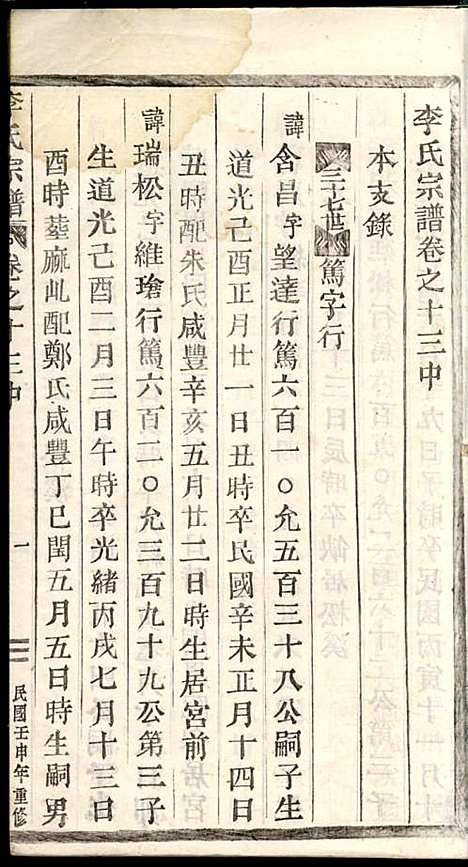 李氏宗譜卷之十三中
本支錄
三十七世 篤字行
諱含昌字望達行篤六百一〇允五百三十八公嗣子生
道光己酉正月廿一日丑時卒民國辛未正月十四日
丑時配朱氏咸豐辛亥五月廿二日時生居宮前
諱瑞松字維瑲行篤六百二〇允三百九十九公第三子
生道光己酉二月三日午時卒光緒丙戌七月十三日
酉時墓麻乢配鄭氏咸豐丁巳閏五月五日時生嗣男
李氏宗譜 卷之十三中 一 民國壬申年重修